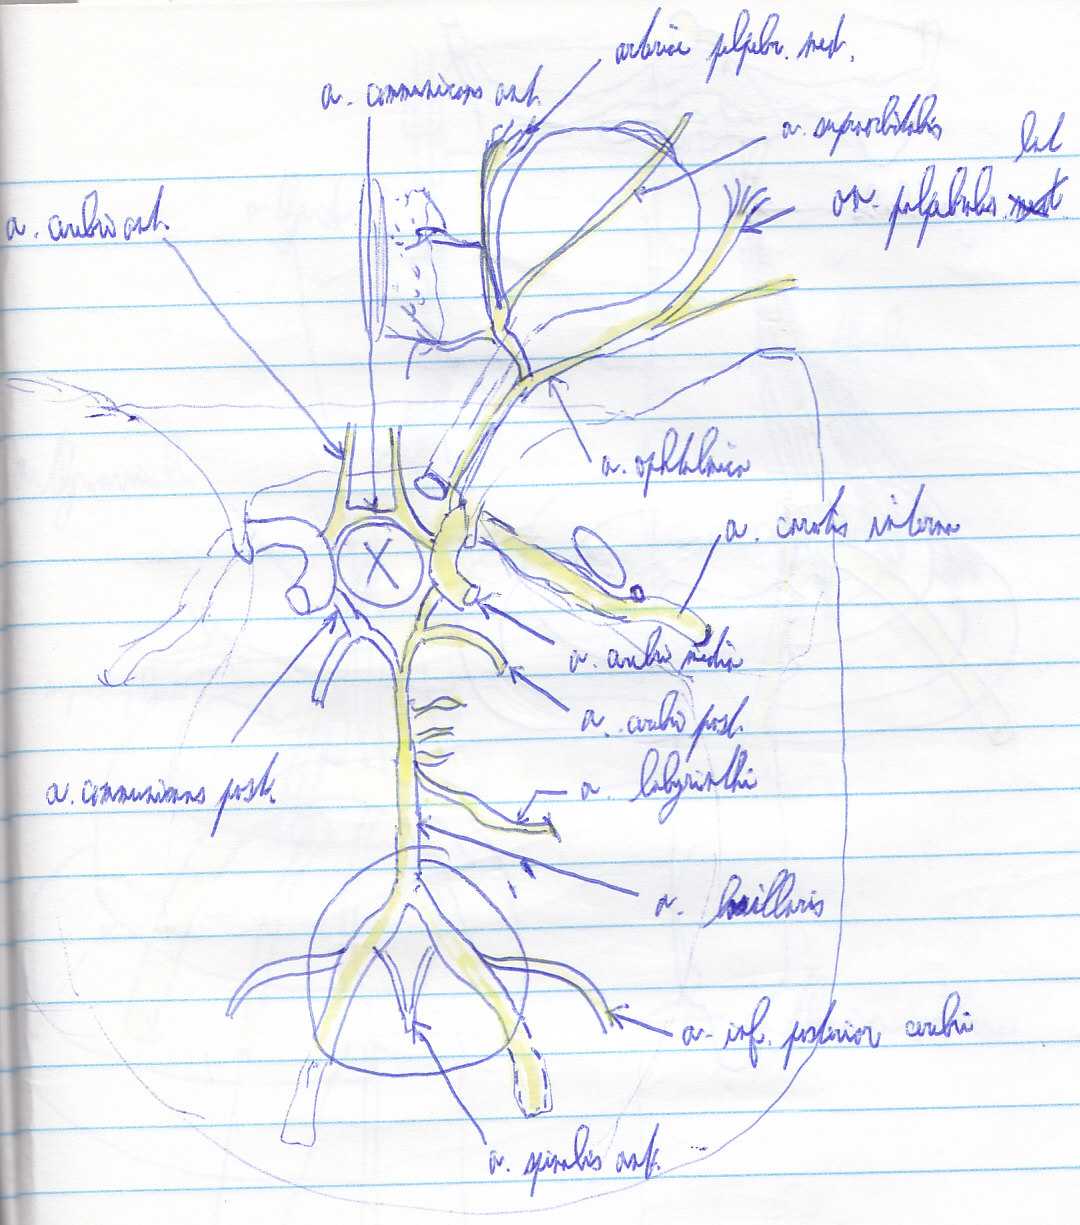 arteriae palpebr. med.
a. communicans ant.
a. supraorbitalis
lat
aa. palpebrales med
a. cerebri ant.
a. ophtalmica
a. carotis interna
a. cerebri media
a. cerebri post.
a. labyrinthi
a. communicans post.
a. basillaris
a. inf. posterior cerebri
a. spinalis ant.
X